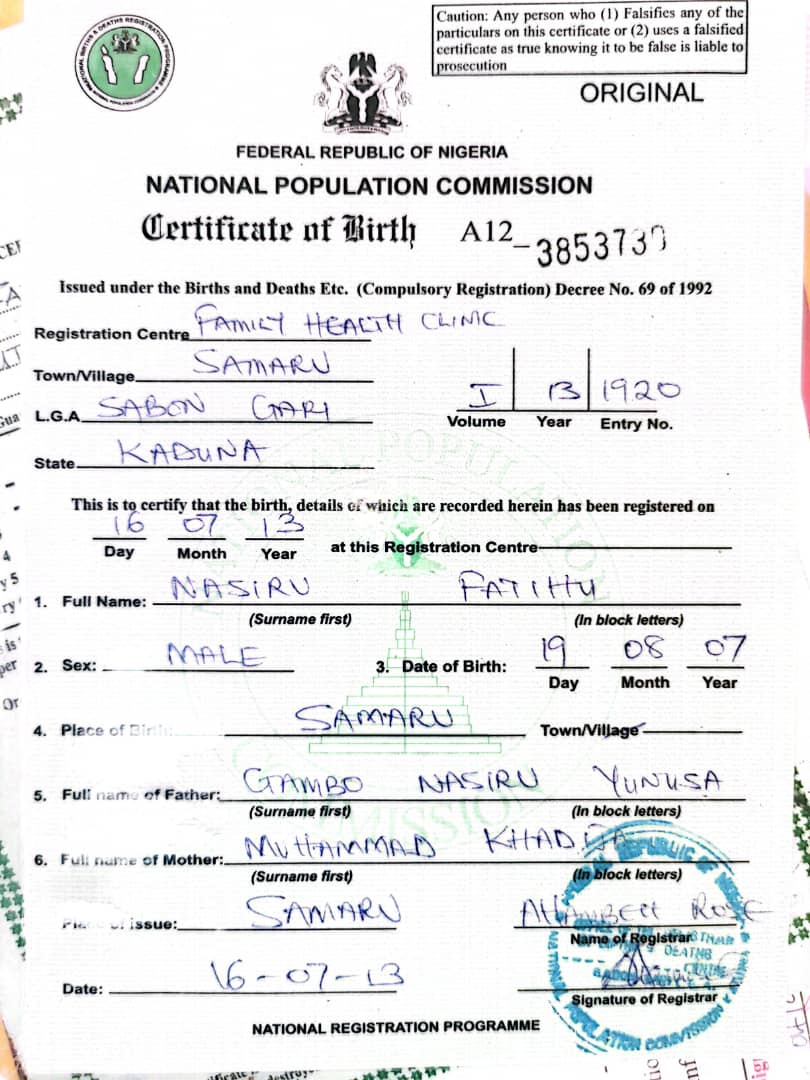 Caution: Any person who (1) Falsifies any of the
particulars on this certificate or (2) uses a falsified
certificate as true knowing it to be false is liable to
prosecution
ORIGINAL
FEDERAL REPUBLIC OF NIGERIA
NATIONAL POPULATION COMMISSION
Certificate of Birth A12_385373
Issued under the Births and Deaths Etc. (Compulsory Registration) Decree No. 69 of 1992
Registration Centre FAMILY HEALTH CLINIC
Town/Village SAMARU
L.G.A. SABON GARI
I 13 1920
Volume Year Entry No.
State KADUNA
This is to certify that the birth, details of which are recorded herein has been registered on
16 07 13
Day Month Year at this Registration Centre
1. Full Name: NASIRU FATIHU
(Surname first) (In block letters)
2. Sex: MALE 3. Date of Birth: 19 08 07
Day Month Year
4. Place of Birth: SAMARU Town/Village
5. Full name of Father: GAMBO NASIRU YUNUSA
(Surname first) (In block letters)
6. Full name of Mother: MUHAMMAD KHADIJA
(Surname first) (In block letters)
Place of issue: SAMARU ROSE
Name of Registrar
Date: 16-07-13
Signature of Registrar
NATIONAL REGISTRATION PROGRAMME